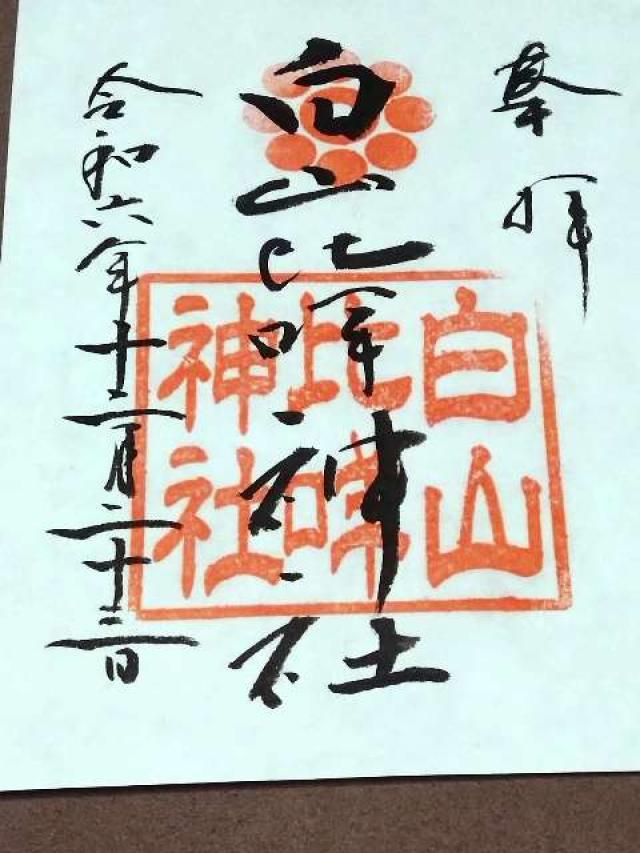 奉拝
白山比咩神社
白山
比咩
神社
令和六年十二月二十三日